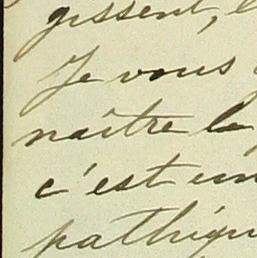 gissent, l
Je vous
naître la
c'est un
pathiqu